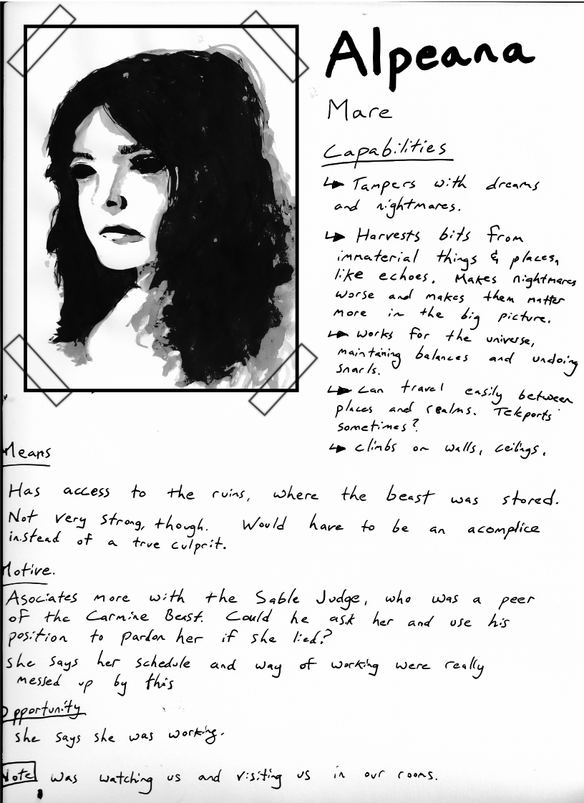 Alpeana
Mare
Capabilities
↳ Tampers with dreams
and nightmares.
↳ Harvests bits from
immaterial things & places,
like echoes. Makes nightmares
worse and makes them matter
more in the big picture.
↳ works for the universe,
maintaining balances and undoing
snarls.
↳ Can travel easily between
places and realms. Teleports
sometimes?
↳ climbs on walls, ceilings.
Means
Has access to the ruins, where the beast was stored.
Not very strong, though. Would have to be an acomplice
instead of a true culprit.
Motive.
Asociates more with the Sable Judge, who was a peer
of the Carmine Beast. Could he ask her and use his
position to pardon her if she lied?
She says her schedule and way of working were really
messed up by this
Opportunity
She says she was working.
Note was watching us and visiting us in our rooms.